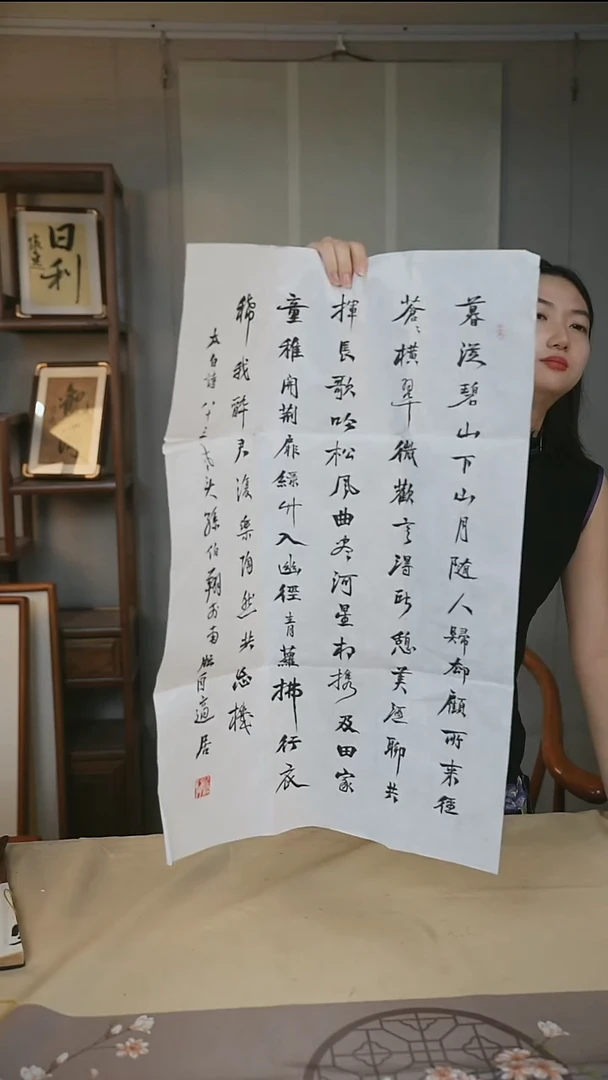 暮從碧山下山月隨人歸却顧所来徑
蒼〻橫翠微歡言得所憩美酒聊共
揮長歌吟松風曲盡河星相携及田家
童稚開荆扉緑竹入幽徑青蘿拂行衣
稀我醉君復樂陶然共忘機
太白詩八十三孫伯翔於南適居
日利